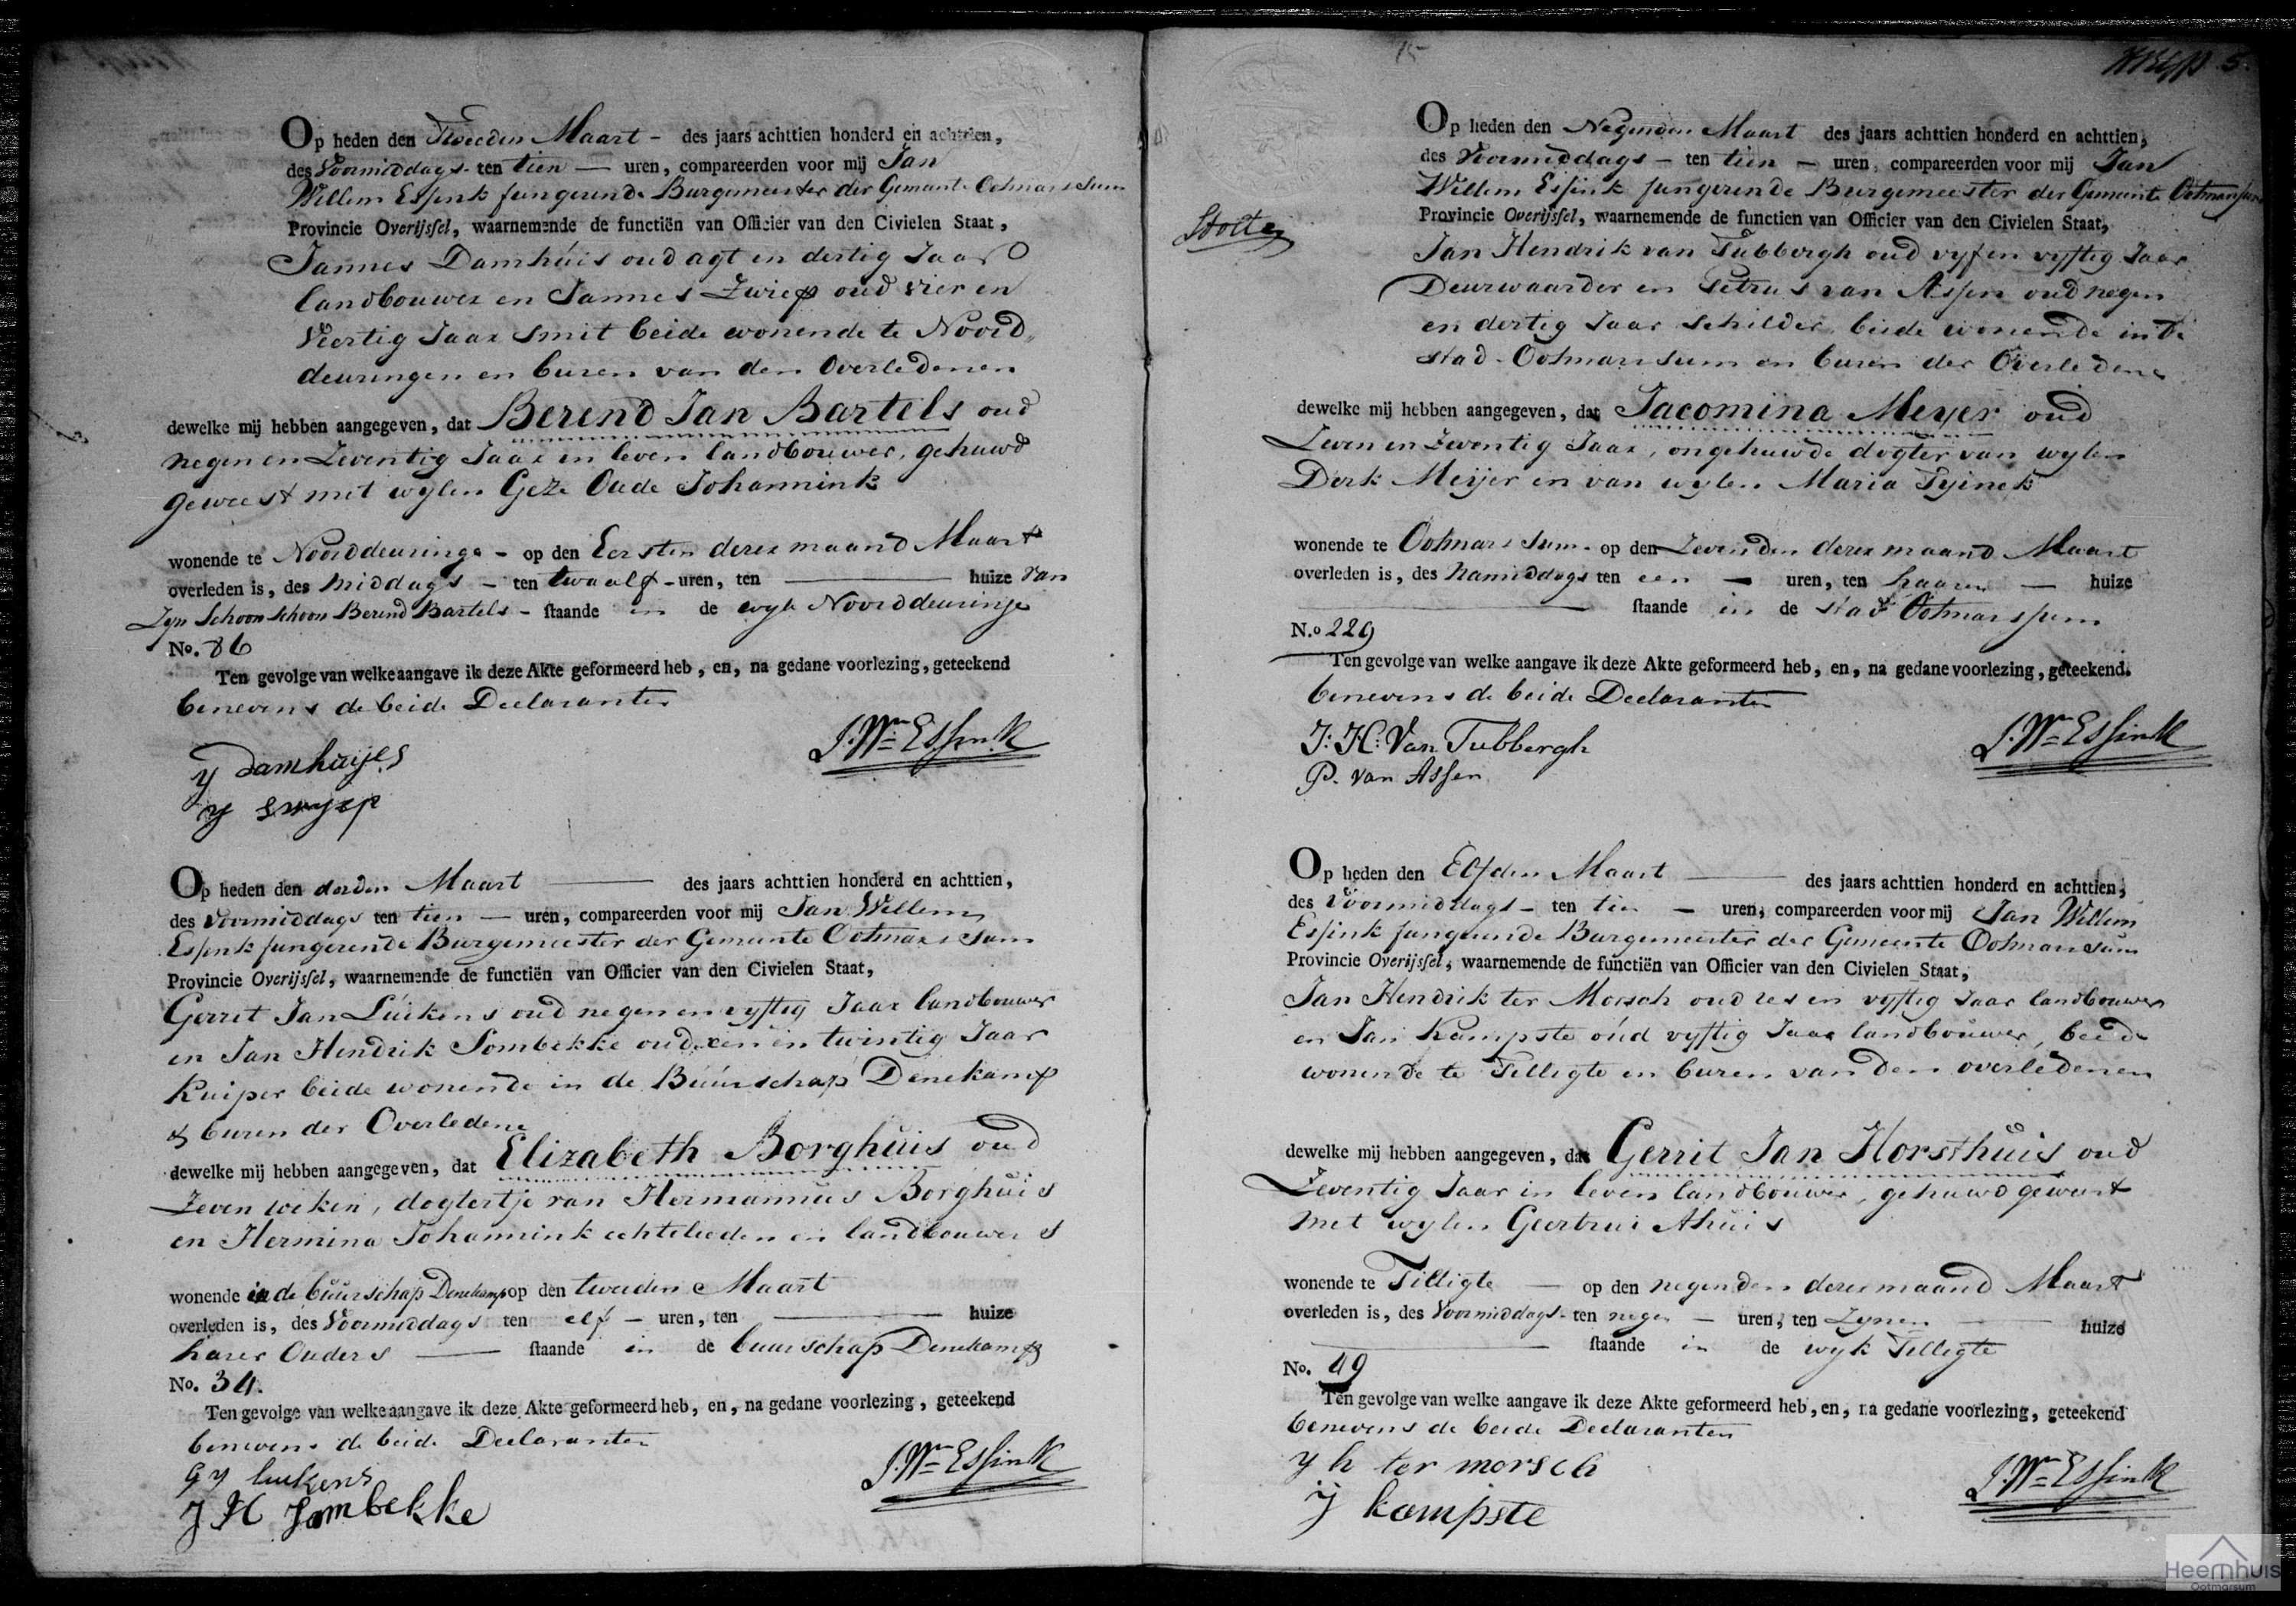 Op heden den Tweeden Maart - des jaars achttien honderd en achttien,
des Voormiddags ten tien — uren, compareerden voor mij Jan
Willem Essink fungerende Burgemeester der Gemeente Ootmarssum
Provincie Overijssel, waarnemende de functiën van Officier van den Civielen Staat,
Jannes Damhuis oud agt en dertig Jaar
landbouwer en Jannes Zwiep oud vier en
Veertig Jaar Smit beide wonende te Noord
deuringen en buren van den Overledenen
dewelke mij hebben aangegeven, dat Berend Jan Bartels oud
negen en Zeventig Jaar in leven landbouwer, gehuwd
geweest met wylen Geze Oude Johannink
wonende te Noorddeuringe - op den Eersten derer maand Maart
overleden is, des Middags - ten twaalf - uren, ten — huize van
Zyn Schoon Schoon Berend Bartels - staande in de wyk Noorddeuringe
No. 86
Ten gevolge van welke aangave ik deze Akte geformeerd heb, en, na gedane voorlezing, geteekend
benevens de beide Declaranten
J. Wm Essink
y Damhuijes
y swyep
Op heden den derden Maart — des jaars achttien honderd en achttien,
des Voormiddags ten tien — uren, compareerden voor mij Jan Willem
Essink fungerende Burgemeester der Gemeente Ootmarssum
Provincie Overijssel, waarnemende de functiën van Officier van den Civielen Staat,
Gerret Jan Luikens oud negen en vyftig Jaar landbouwer
en Jan Hendrik Sombekke oud een en twintig Jaar
Kuiper beide wonende in de Buurschap Denekamp
& buren der Overledene
dewelke mij hebben aangegeven, dat Elizabeth Borghuis oud
Zeven weken, dogtertje van Hermannus Borghuis
en Hermina Johannink echtelieden en landbouwers
wonende in de buurschap Denekamp op den tweeden Maart
overleden is, des Voormiddags ten elf - uren, ten — huize
harer Ouders — staande in de buurschap Denekamp
No. 34.
Ten gevolge van welke aangave ik deze Akte geformeerd heb, en, na gedane voorlezing, geteekend
benevens de beide Declaranten
J. Wm Essink
G y lukens
J H Sombekke
15
5.
Stolte
Op heden den Negenden Maart des jaars achttien honderd en achttien,
des Voormiddags - ten tien - uren, compareerden voor mij Jan
Willem Essink fungerende Burgemeester der Gemeente Ootmarssum
Provincie Overijssel, waarnemende de functien van Officier van den Civielen Staat,
Jan Hendrik van Tubbergh oud vyf en vyftig Jaar
Deurwaarder en Petrus van Assen oud negen
en dertig Jaar Schilder, beide wonende in de
stad Ootmarssum en buren der Overledene
dewelke mij hebben aangegeven, dat Jacomina Meyer oud
Zeven en Zeventig Jaar, ongehuwde dogter van wylen
Derk Meijer en van wylen Maria Tyinck
wonende te Ootmarssum - op den Zevenden derer maand Maart
overleden is, des namiddags ten een - uren, ten haaren — huize
— staande in de stad Ootmarssum
N.o 229
Ten gevolge van welke aangave ik deze Akte geformeerd heb, en, na gedane voorlezing, geteekend.
benevens de beide Declaranten
J. Wm Essink
J: H: Van Tubbergh
P. van Assen
Op heden den Elfden Maart — des jaars achttien honderd en achttien,
des Voormiddags - ten tien - uren, compareerden voor mij Jan Willem
Essink fungerende Burgemeester der Gemeente Ootmarssum
Provincie Overijssel, waarnemende de functiën van Officier van den Civielen Staat,
Jan Hendrik ter Morsch oud zes en vyftig Jaar landbouwer
en Jan Kampste oud vyftig Jaar landbouwer, beide
wonende te Tilligte en buren van den overledenen
dewelke mij hebben aangegeven, dat Gerrit Jan Horsthuis oud
Zeventig Jaar in leven landbouwer, gehuwd geweest
met wylen Geertrui Ahuis
wonende te Tilligte — op den negenden derer maand Maart
overleden is, des Voormiddags - ten negen - uren, ten Zynen — huize
— staande in de wyk Tilligte
No. 49
Ten gevolge van welke aangave ik deze Akte geformeerd heb, en, na gedane voorlezing, geteekend
benevens de beide Declaranten
J. Wm Essink
y h ter morsch
ij kampste
Heemhuis
Ootmarsum